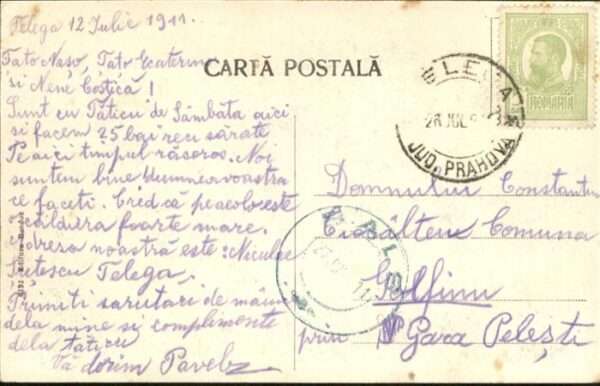 Telega 12 Iulie 1911.
Tato Naso, Tato Ecaterin
si Nene Costică!
Sunt cu Taticu de Sâmbăta aici
si facem 25 bai reci sărate
Pe aici timpul răsoros. Noi
suntem bine Dumneavoastra
ce faceti. Cred că pe acolo este
căldura foarte mare.
Adresa noastră este: Niculae
Telega.
Primiti sarutari de mâini
dela mine si complimente
dela taticu
Vă dorim Pavel
CARTĂ POSTALĂ
ROMANIA
JUD. PRAHOVA
Domnului Constantin
Comuna
prin Gara Pelești